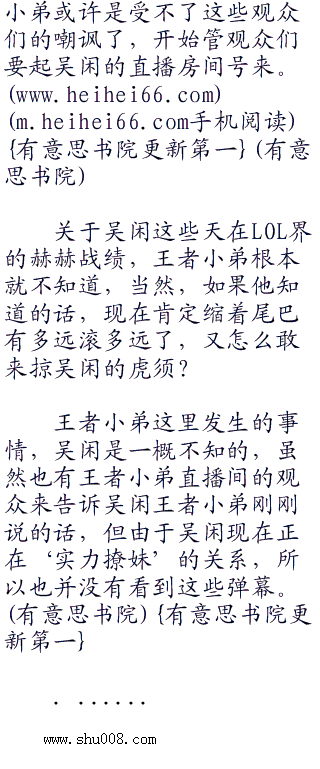 小弟或许是受不了这些观众
们的嘲讽了，开始管观众们
要起吴闲的直播房间号来。
(www.heihei66.com)
(m.heihei66.com手机阅读)
{有意思书院更新第一}(有意
思书院)
关于吴闲这些天在LOL界
的赫赫战绩，王者小弟根本
就不知道，当然，如果他知
道的话，现在肯定缩着尾巴
有多远滚多远了，又怎么敢
来掠吴闲的虎须？
王者小弟这里发生的事
情，吴闲是一概不知的，虽
然也有王者小弟直播间的观
众来告诉吴闲王者小弟刚刚
说的话，但由于吴闲现在正
在‘实力撩妹’的关系，所
以也并没有看到这些弹幕。
(有意思书院){有意思书院更
新第一}
. ......
www.shu008.com